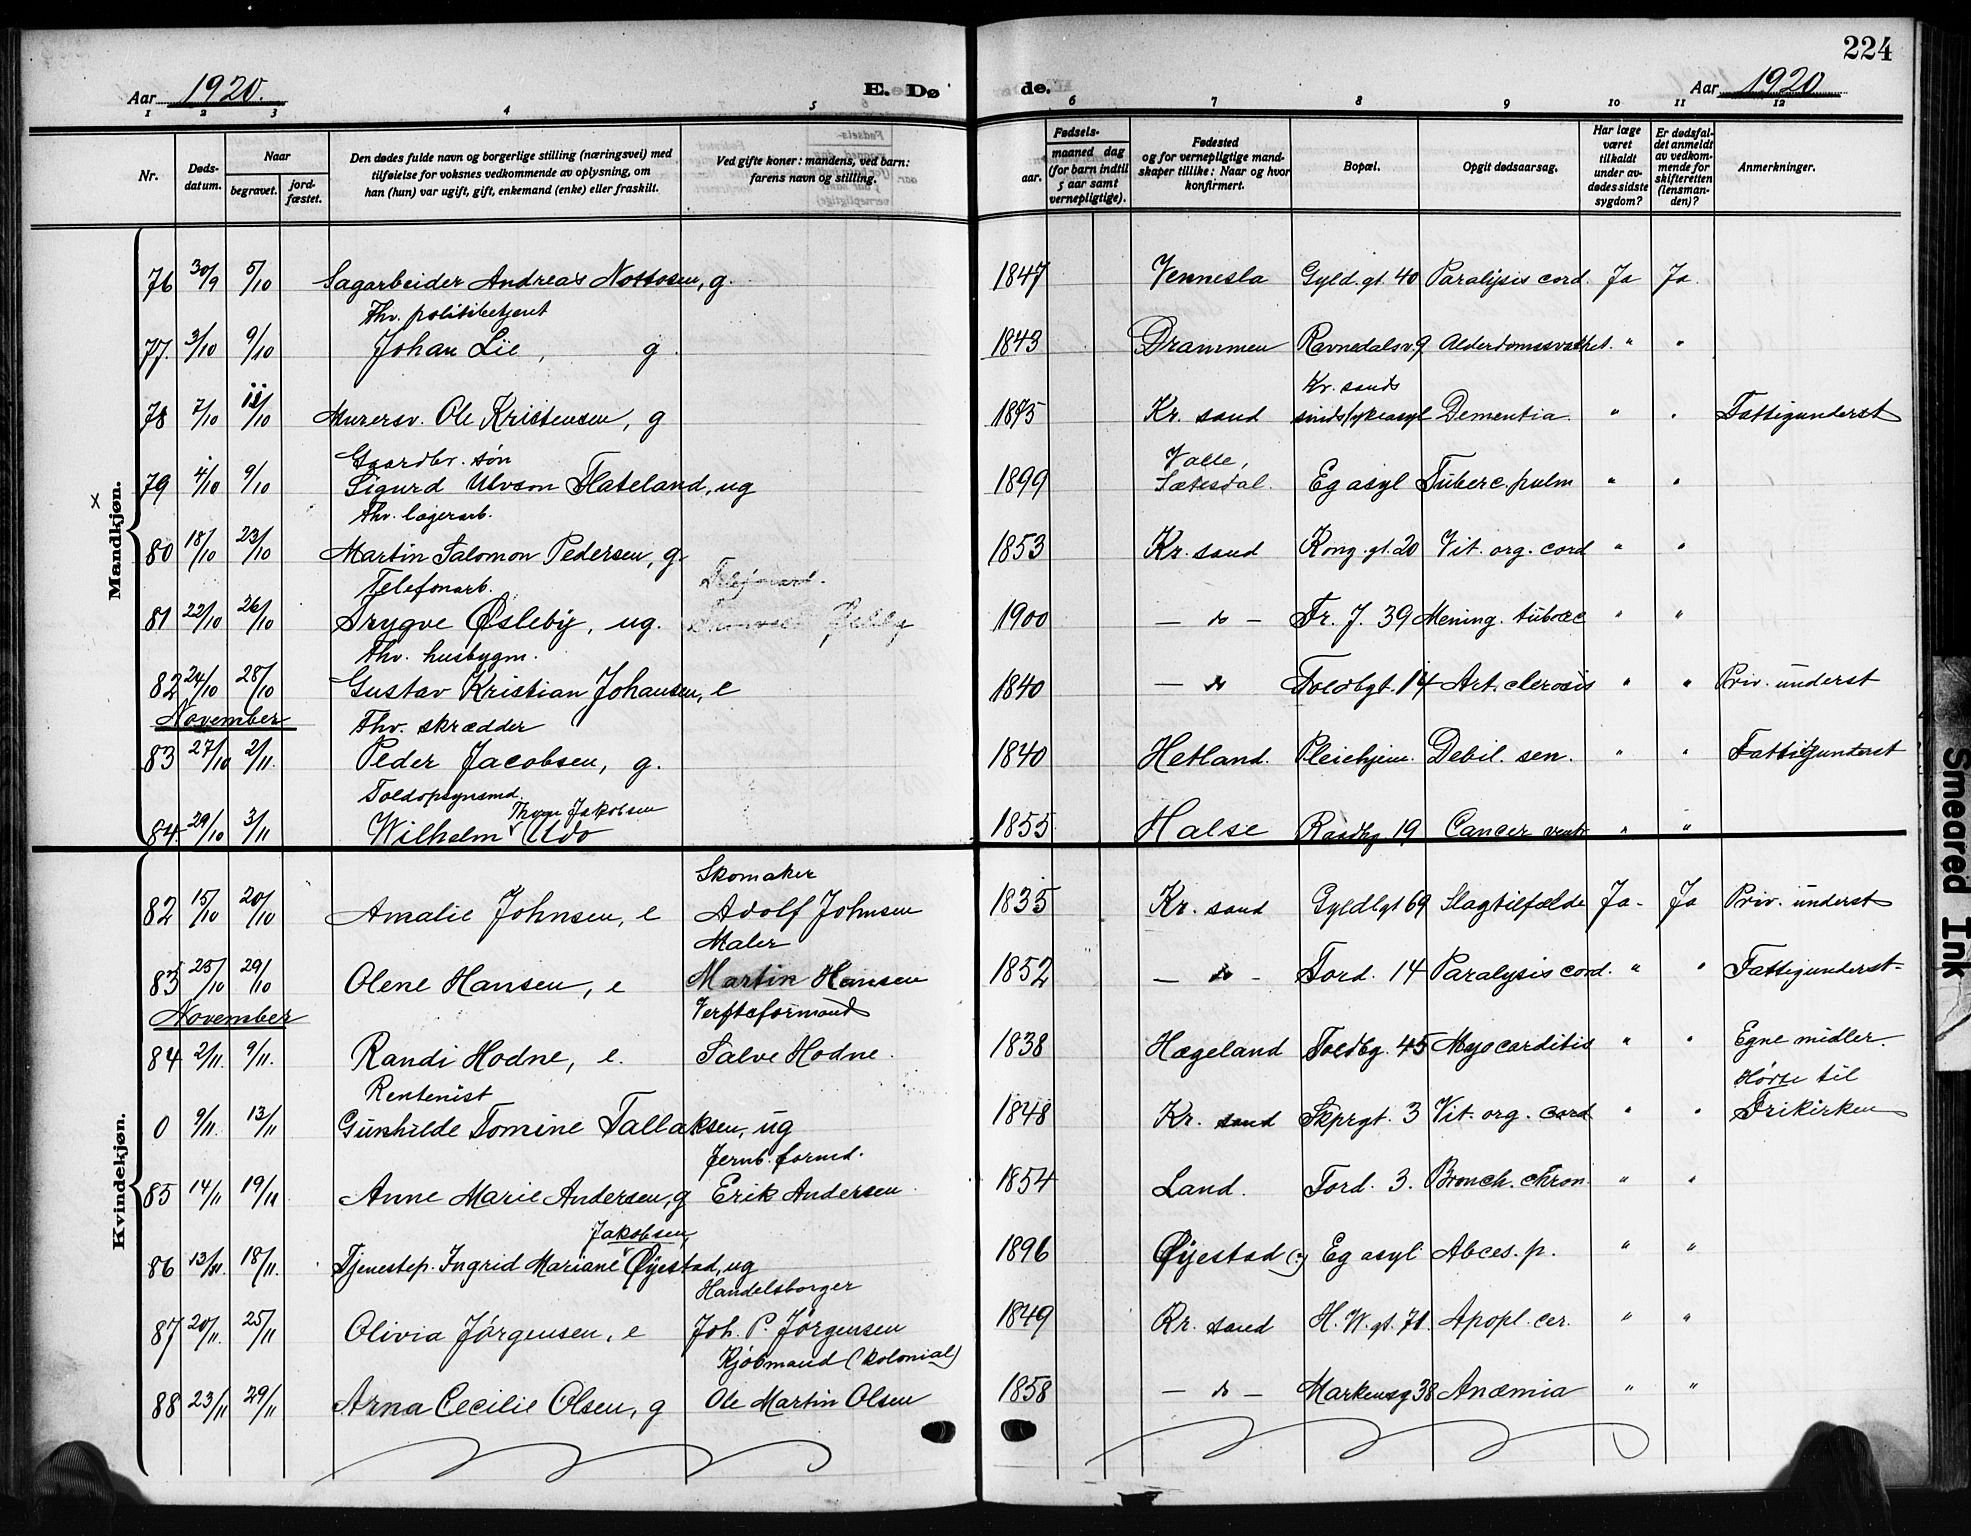 224
Aar 1920. E. Dø de. Aar 1920
1 2 3 4 5 6 7 8 9 10 11 12
Nr.
Døds-datum.
Naar
begravet.
jord-fæstet.
Den dødes fulde navn og borgerlige stilling (næringsvei) med
tilføielse for voksnes vedkommende av oplysning, om
han (hun) var ugift, gift, enkemand (enke) eller fraskilt.
Ved gifte koner: mandens, ved barn:
farens navn og stilling.
Fødsels-
aar.
maaned dag
(for barn indtil
5 aar samt
vernepligtige).
Fødested
og for vernepligtige mand-
skaper tillike: Naar og hvor
konfirmert.
Bopæl.
Opgit dødsaarsag.
Har læge
været
tilkaldt
under av-
dødes sidste
sygdom?
Er dødsfal-
det anmeldt
av vedkom-
mende for
skifteretten
(lensman-
den)?
Anmerkninger.
Mandkjøn.
x
76 30/9 5/10 Sagarbeider Andreas Nottosen, g. 1847 Vennesla Gyld. gt 40 Paralysis cord. Ja Ja
Fhv. politibetjent
77. 3/10 9/10 Johan Lie, g. 1843 Drammen Ravnedalsv. 9 Alderdomssvakhet. " "
Kr. sands
78 7/10 11/10 Murersv. Ole Kristensen, g 1875 Kr. sand sindssykeasyl Dementia " " Fattigunderst
Gaardbr. søn Valle,
79 4/10 9/10 Sigurd Ulvson Flateland, ug 1899 Sætesdal. Eg asyl Tuberc. pulm " "
Fhv. lagerarb.
80 18/10 23/10 Martin Salomon Pedersen, g. 1853 Kr. sand Kong. gt. 20 Vit. org. cord " "
Telefonarb.
81 22/10 26/10 Trygve Øsleby, ug. 1900 — do — Fr. J. 39 Mening. tuberc " "
Fhv. husbygm.
82 24/10 28/10 Gustav Kristian Johansen, e 1840 — do Toldbgt. 14 Art. clerosis " " Priv. underst
November
Fhv. skrædder
83 27/10 2/11. Peder Jacobsen, g. 1840 Hetland. Pleiehjem. Debil. sen. " " Fattigunderst
Toldopsynsmd.
Thom Jakobsen
84. 29/10 3/11 Wilhelm Udo 1855 Halse Raadhg 19 Cancer ventr " "
Kvindekjøn.
Skomaker
82 15/10 20/10 Amalie Johnsen, e Adolf Johnsen 1835 Kr. sand Gyldlgt 69 Slagtilfælde Ja - Ja Priv. underst
Maler
83 25/10 29/10 Olene Hansen, e Martin Hansen 1852 — do - Tord. 14 Paralysis cord. " " Fattigunderst-
November Verftsformand
84 2/11. 9/11. Randi Hodne, e. Salve Hodne. 1838 Hægeland Toldbg. 45 Myocarditis " " Egne midler.
Rentenist Hørte til
0 9/11. 13/11 Gunhilde Tomine Tallaksen, ug 1848 Kr. sand Skprgt. 3 Vit. org. cord " " Frikirken
Jernb. formd.
85 14/11 19/11 Anne Marie Andersen, g Erik Andersen. 1854 Land. Tord. 3. Bronch. chron " "
Jakobsen
86 13/11. 18/11. Tjenestep. Ingrid Mariane Øyestad, ug 1896 Øyestad (?) Eg asyl Abces. p. " "
Handelsborger
87 20/11. 25/11 Olivia Jørgensen, e Joh. P. Jørgensen 1849 Kr. sand H. W. gt. 71. Apopl. cer. " "
Kjøbmand (kolonial)
88 23/11 29/11 Arna Cecilie Olsen, g Ole Martin Olsen 1858 — do — Markensg 38 Anæmia " "
Smeared Ink